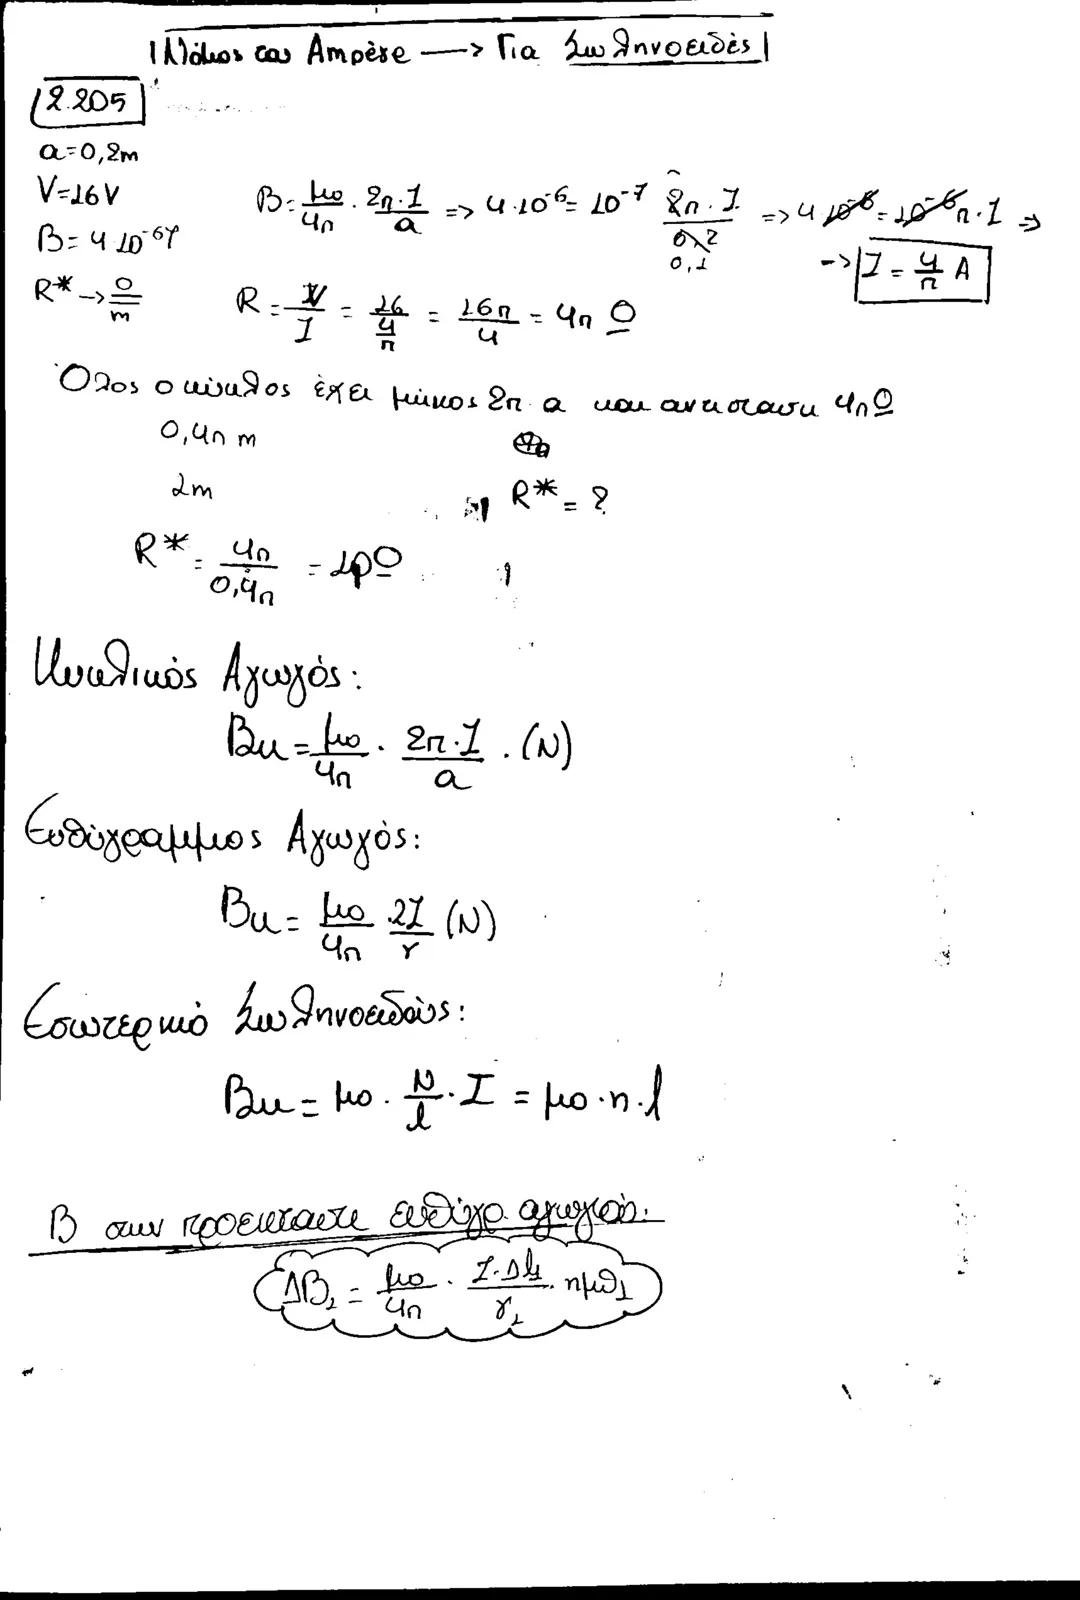 Νόμος του Ampère —> Για Σωληνοειδές
2.205
a=0,2m
V=16V
B=4 10^-6 T
R* -> Ω/m
B = μο/4π · 2π·I/a => 4·10^-6 = 10^-7 2π·I/0,2 0,1 => 4 10^-6 = 10^-6 π·I =>
-> I = 4/π A
R = V/I = 16/(4/π) = 16π/4 = 4π Ω
Όλος ο κύκλος έχει μήκος 2π a και αντίσταση 4π Ω
0,4π m
1m R* = ?
R* = 4π/0,4π = 10 Ω
Κυκλικός Αγωγός:
Bκ = μο/4π · 2π·I/a · (N)
Ευθύγραμμος Αγωγός:
Bκ = μο/4π 2I/r (N)
Εσωτερικό Σωληνοειδούς:
Bκ = μο · N/l · I = μο·n·I
B στην προέκταση ευθύγρ. αγωγού:
ΔB₁ = μο/4π · I·Δl₁/r₁ · ημθ₁